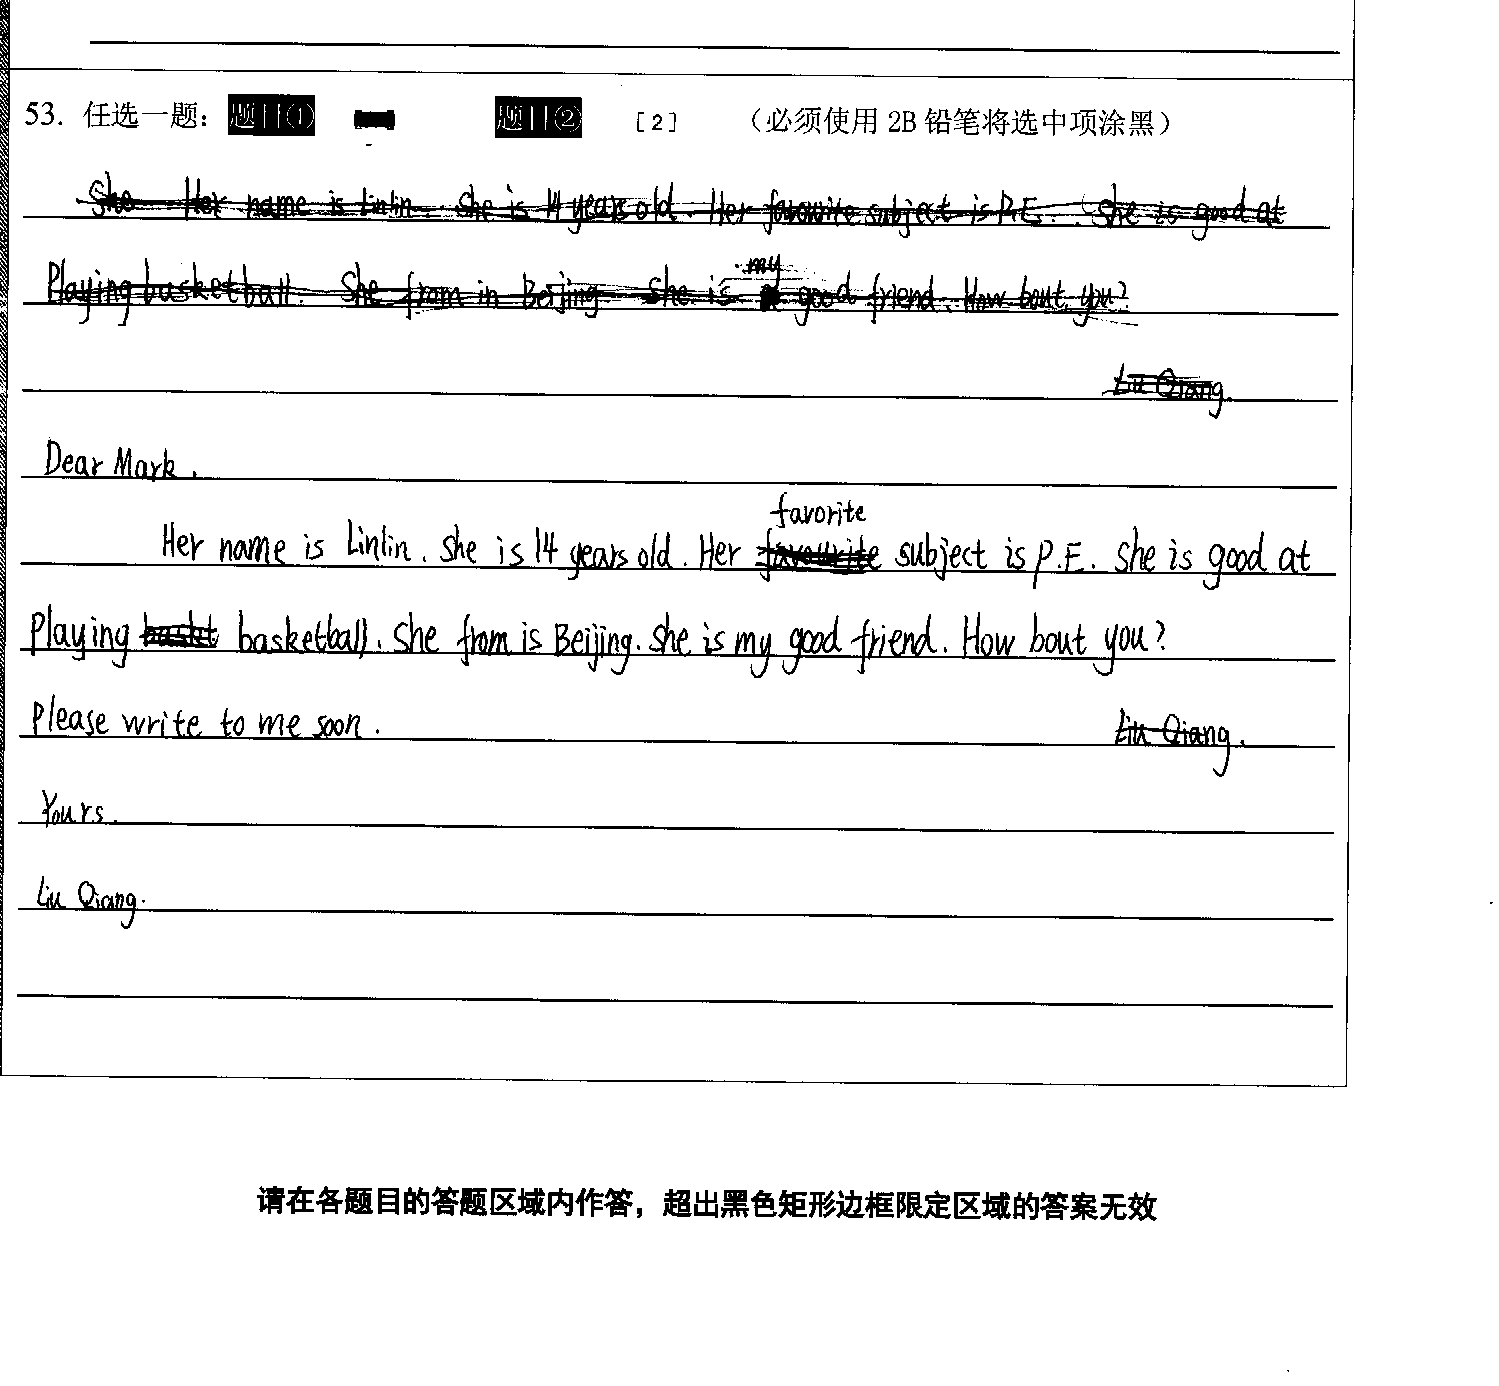 53. 任选一题: 题目① 题目② [2] (必须使用 2B 铅笔将选中项涂黑)
She Her name is Linlin. She is 14 years old. Her favourite subject is P.E. She is good at
my
Playing basketball. She from in Beijing She is good friend. How bout you?
Liu Qiang.
Dear Mark.
favorite
Her name is Linlin. She is 14 years old. Her favourite subject is P.E. She is good at
Playing baskt basketball. She from is Beijing. She is my good friend. How bout you?
Please write to me soon. Liu Qiang.
Yours.
Liu Qiang.
请在各题目的答题区域内作答，超出黑色矩形边框限定区域的答案无效